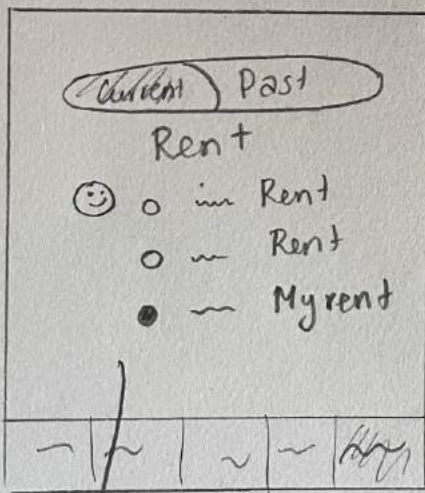 Current Past
Rent
Rent
Rent
My rent